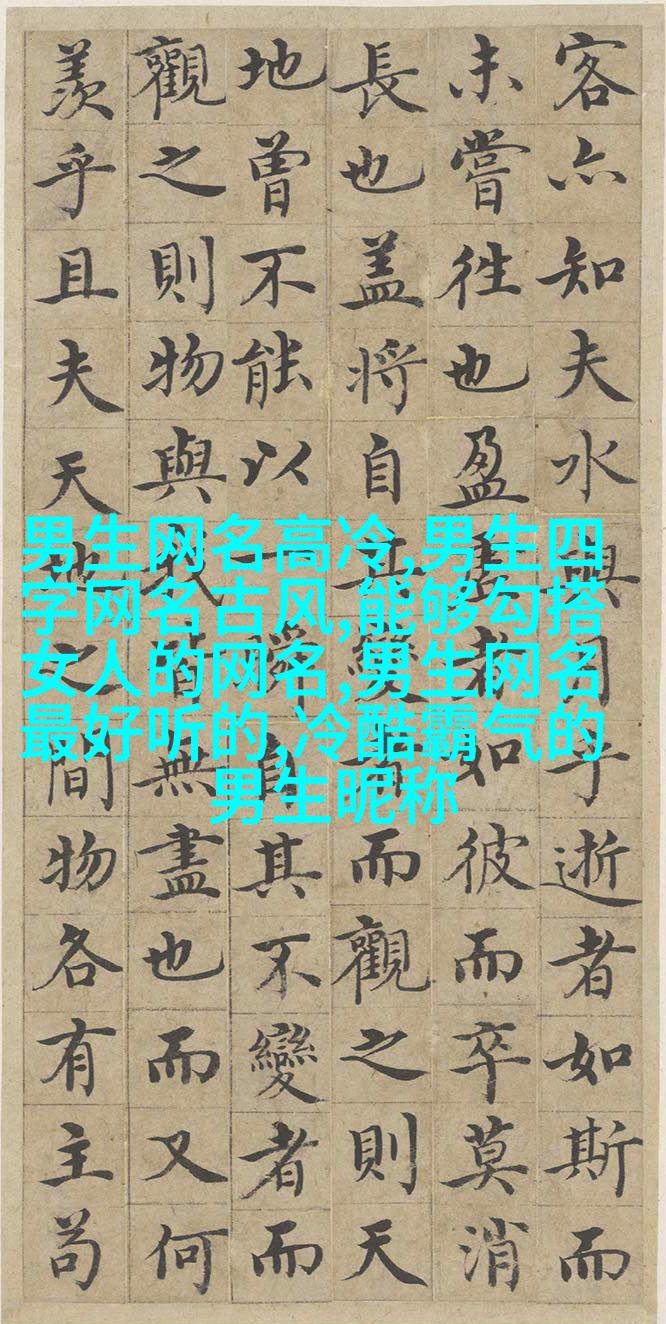 客亦知夫水與月乎逝者如斯而
未嘗往也盈虛者如彼而卒莫消
長也盖將自其變者而觀之則天
地曾不能以一瞬自其不變者而
觀之則物與我皆無盡也而又何
羨乎且夫天地之間物各有主苟
男生网名高冷,男生四
字网名古风,能够勾搭
女人的网名,男生网名
最好听的,冷酷霸气的
男生昵称